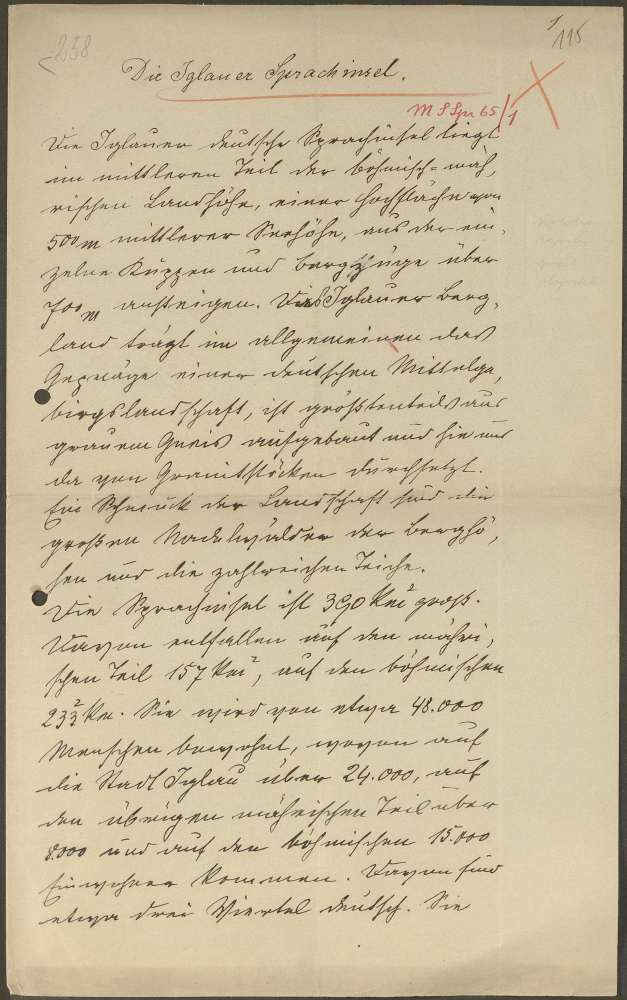 258
1
115
Die Iglauer Sprachinsel.
M S Spr 65/1
Die Iglauer deutsche Sprachinsel liegt
im mittleren Teil der böhmisch-mäh,
rischen Landhöhe, einer Hochfläche von
500 m mittlerer Seehöhe, aus der ein,
zelne Kuppen und Bergzüge über
700 m ansteigen. Das Iglauer Berg,
land trägt im allgemeinen das
Gepräge einer deutschen Mittelge,
birgslandschaft, ist größtenteils aus
grauem Gneis aufgebaut und hie und
da von Granitstöcken durchsetzt.
Ein Schmuck der Landschaft sind die
großen Nadelwälder der Berghö,
hen und die zahlreichen Teiche.
Die Sprachinsel ist 390 km² groß.
Davon entfallen auf den mähri,
schen Teil 157 km², auf den böhmischen
233 km². Sie wird von etwa 48.000
Menschen bewohnt, wovon auf
die Stadt Iglau über 24.000, auf
den übrigen mährischen Teil über
8.000 und auf den böhmischen 15.000
Einwohner kommen. Davon sind
etwa drei Viertel deutsch. Die